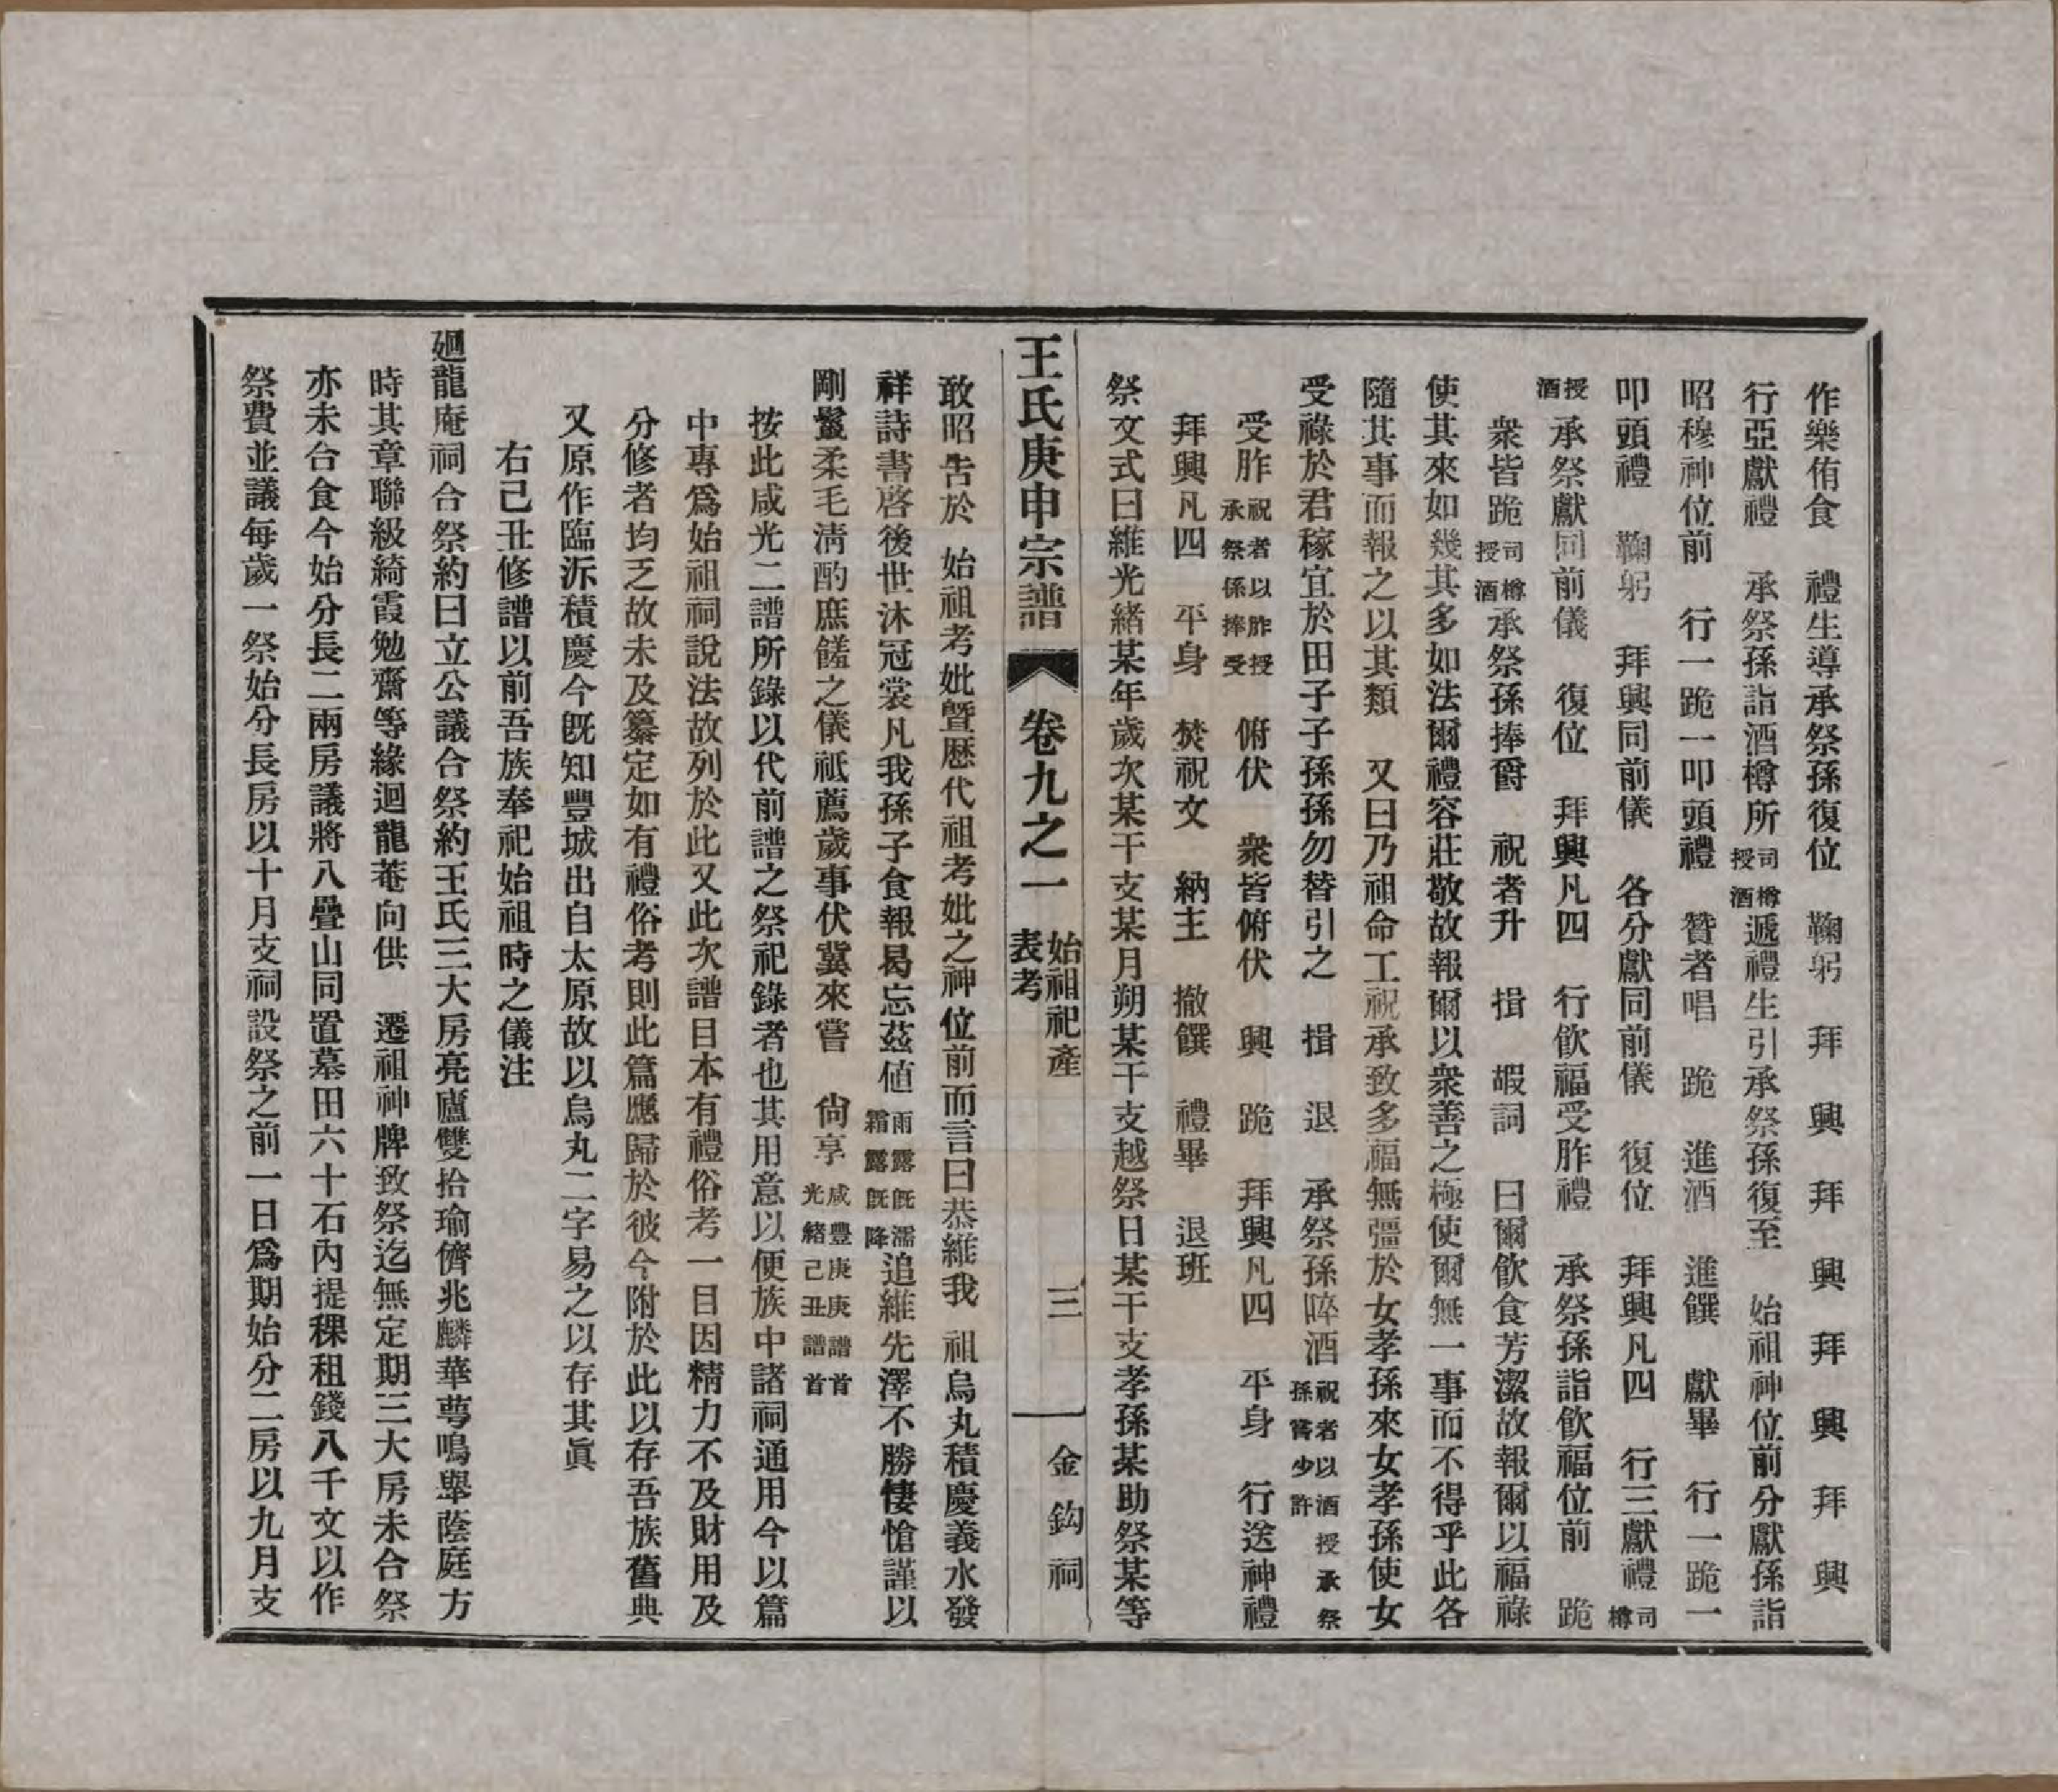 作樂侑食　禮生導承祭孫復位　鞠躬　拜　興　拜　興　拜　興　拜　興
行亞獻禮　承祭孫詣酒樽所司樽授酒遞禮生引承祭孫復至　始祖神位前分獻孫詣
昭穆神位前　行一跪一叩頭禮　贊者唱　跪　進酒　進饌　獻畢　行一跪一
叩頭禮　鞠躬　拜興同前儀　各分獻同前儀　復位　拜興凡四　行三獻禮司樽
授酒承祭獻同前儀　復位　拜興凡四　行飲福受胙禮　承祭孫詣飲福位前　跪
衆皆跪司樽授酒承祭孫捧爵　祝者升　揖　嘏詞　曰爾飲食芳潔故報爾以福祿
使其來如幾其多如法爾禮容莊敬故報爾以衆善之極使爾無一事而不得乎此各
隨其事而報之以其類　又曰乃祖命工祝承致多福無疆於女孝孫來女孝孫使女
受祿於君稼宜於田子子孫孫勿替引之　揖　退　承祭孫啐酒祝者以酒授承祭孫嘗少許
受胙祝者以胙授承祭係捧受　俯伏　衆皆俯伏　興　跪　拜興凡四　平身　行送神禮
拜興凡四　平身　焚祝文　納主　撤饌　禮畢　退班
祭文式曰維光緒某年歲次某干支某月朔某干支越祭日某干支孝孫某助祭某等
王氏庚申宗譜　卷九之一　始祖祀產表考　三　金鈎祠
敢昭告於　始祖考妣曁歷代祖考妣之神位前而言曰恭維我　祖烏丸積慶義水發
祥詩書啓後世沐冠裳凡我孫子食報曷忘茲値雨露旣濡霜露旣降追維先澤不勝悽愴謹以
剛鬣柔毛淸酌庶饈之儀祗薦歲事伏冀來嘗　尙享咸豐庚庚譜首光緒己丑譜首
按此咸光二譜所錄以代前譜之祭祀錄者也其用意以便族中諸祠通用今以篇
中專爲始祖祠說法故列於此又此次譜目本有禮俗考一目因精力不及財用及
分修者均乏故未及纂定如有禮俗考則此篇應歸於彼今附於此以存吾族舊典
又原作臨沂積慶今旣知豐城出自太原故以烏丸二字易之以存其眞
右己丑修譜以前吾族奉祀始祖時之儀注
廻龍庵祠合祭約曰立公議合祭約王氏三大房亮廬雙拾瑜儕兆麟華萼鳴擧蔭庭方
時其章聯級綺霞勉齋等緣迴龍菴向供　遷祖神牌致祭迄無定期三大房未合祭
亦未合食今始分長二兩房議將八疊山同置墓田六十石內提稞租錢八千文以作
祭費並議每歲一祭始分長房以十月支祠設祭之前一日爲期始分二房以九月支